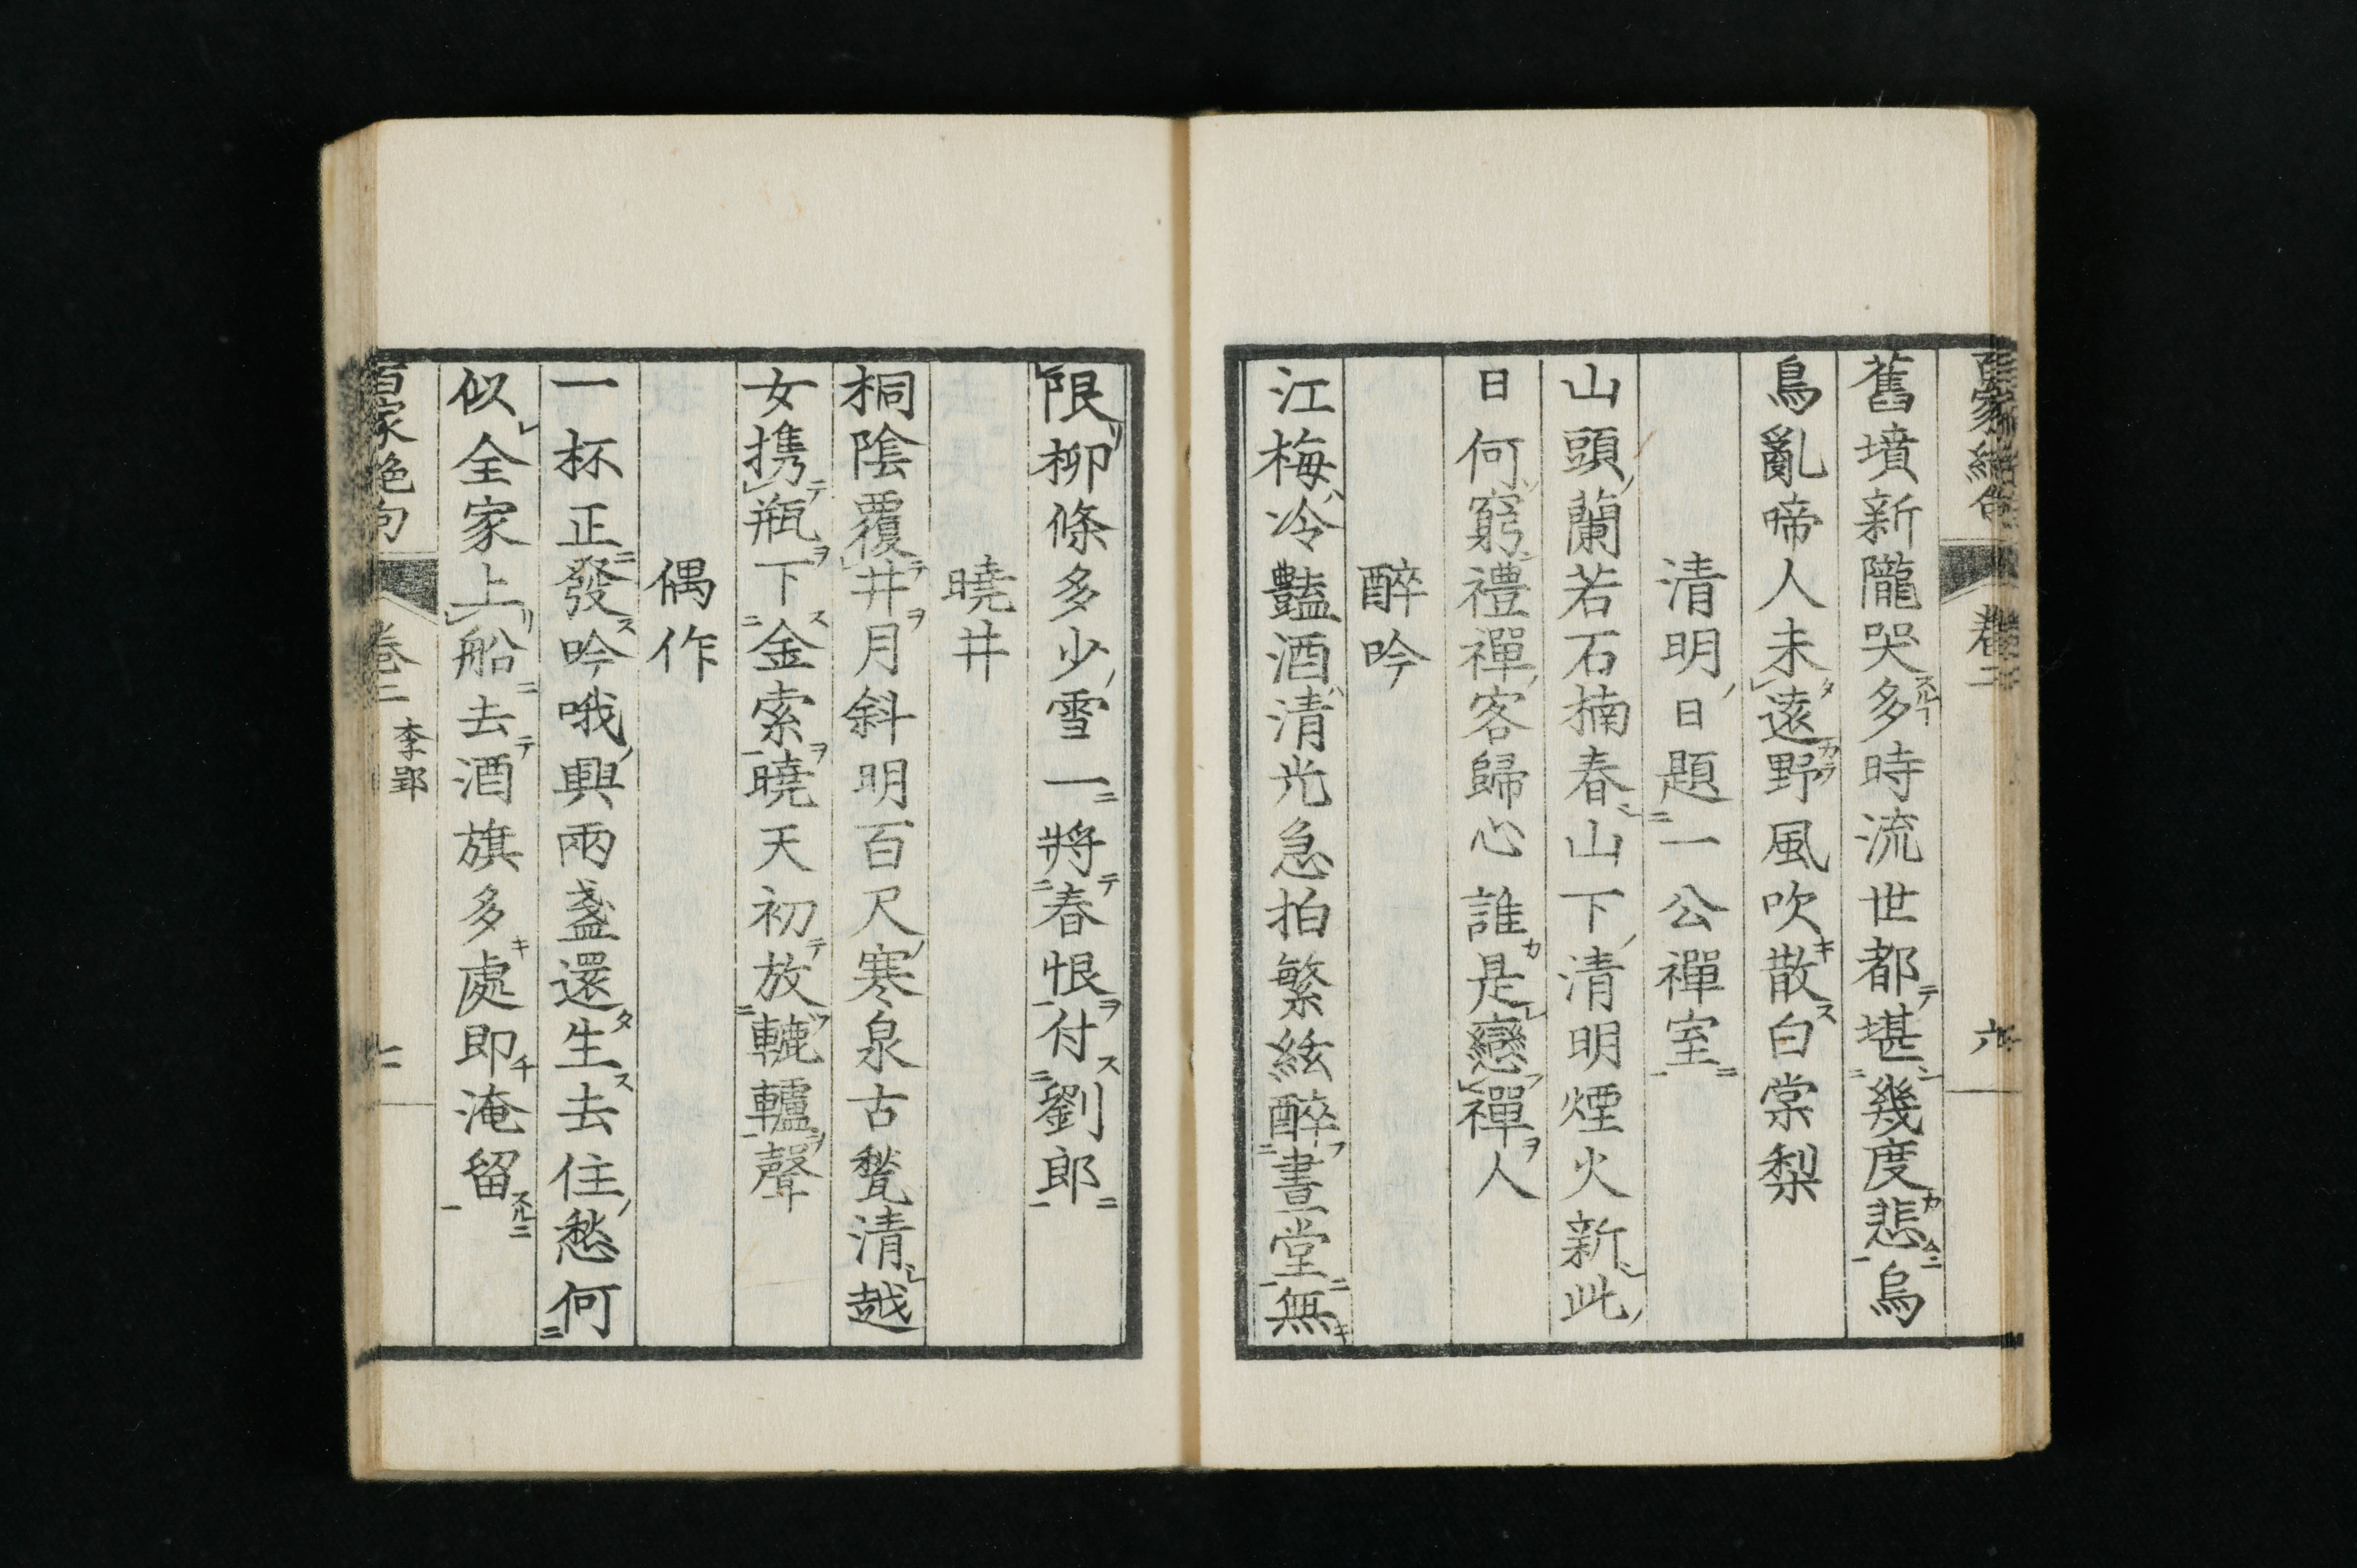 舊墳新隴哭多時流世都堪幾度悲烏
鳥亂啼人未遠野風吹散白棠梨
清明日題一公禪室
山頭蘭若石楠春山下清明煙火新此
日何窮禮禪客歸心誰是戀禪人
醉吟
江梅冷豔酒清光急拍繁絃醉晝堂無
限柳條多少雪一將春恨付劉郎
曉井
桐陰覆井月斜明百尺寒泉古甃清越
女携瓶下金索曉天初放轆轤聲
偶作
一杯正發吟哦興兩盞還生去住愁何
似全家上船去酒旗多處即淹留
百家絶句 卷二 李郢 七